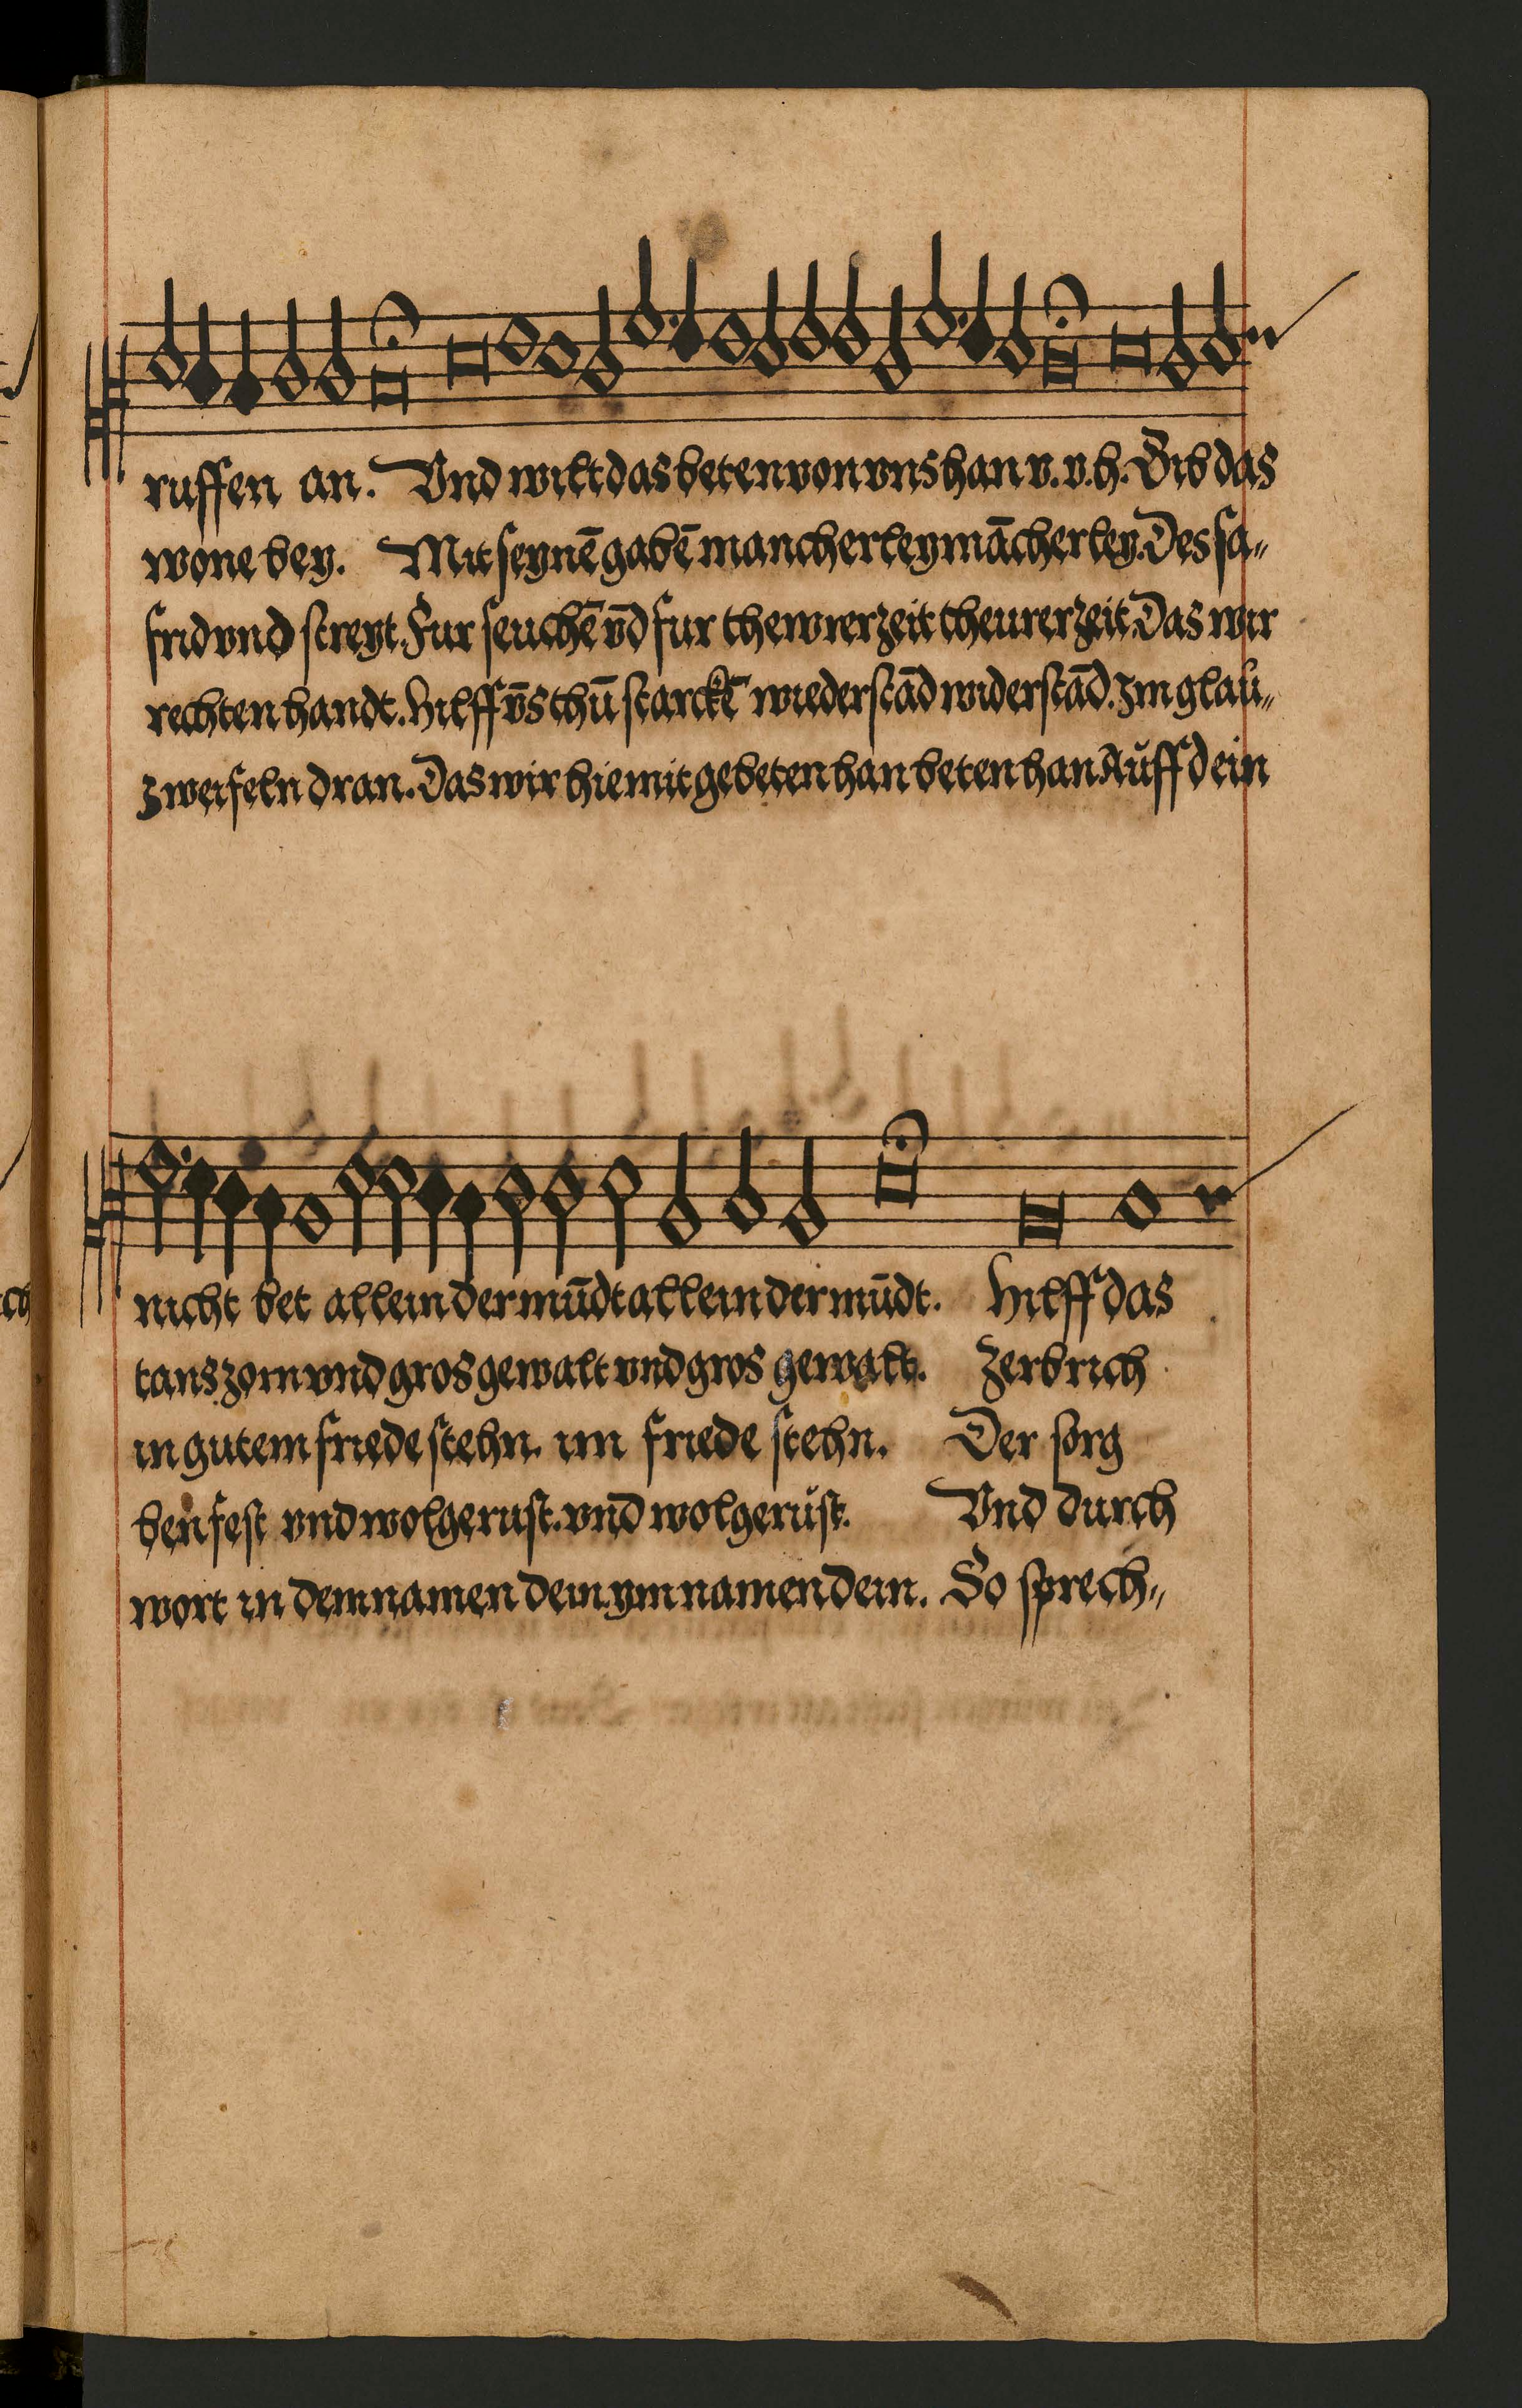 ruffen an. Vnd wilt das beten von vns han v. v. h. Gib das
wone bey. Mit seynē gabē mancherley mācherley. Des sa„
frid vnd streyt. Fur seuchē vn̄d fur thewrer zeit theurer zeit. Das wir
rechten handt. Hilff vn̄s thū starckē wiederstād widerstād. Im glau„
zweifeln dran. Das wir hiemit gebeten han beten han Auff dein
nicht bet allein der mūdt allein der mūdt. Hilff das
tans zorn vnd gros gewalt vnd gros gewalt. Zerbrich
in gutem friede stehn. im friede stehn. Der sorg
ben fest vnd wolgerust. vnd wolgerust. Vnd durch
wort in dem namen dein. ym namen dein. So sprech„